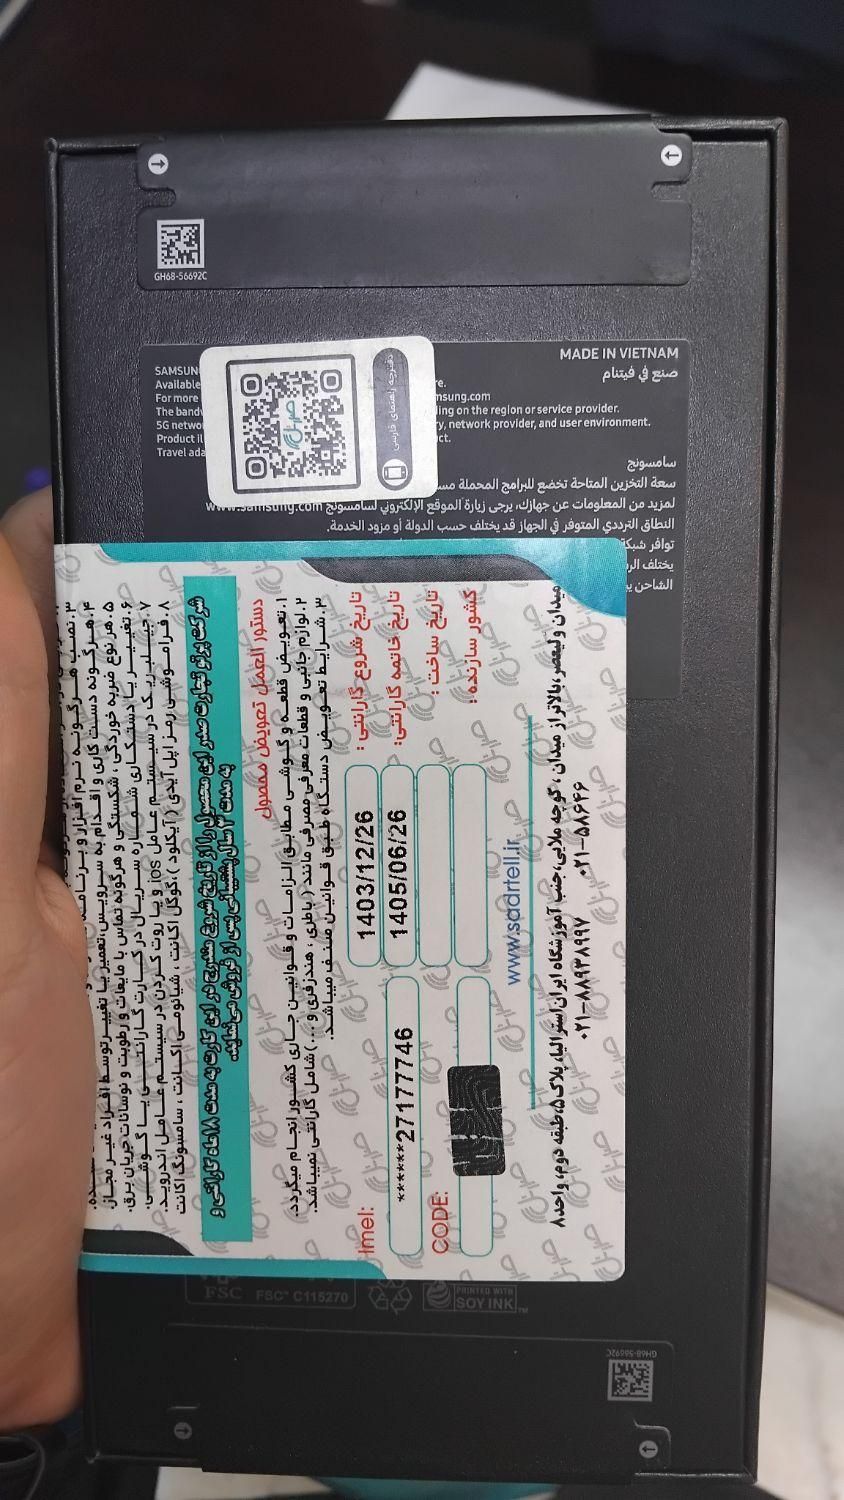 GH68-56692C
MADE IN VIETNAM
صنع في فيتنام
SAMSUN
Available
re.
For more
msung.com
The bandw
ding on the region or service provider.
5G networ
ry, network provider, and user environment.
Product il
ct.
Travel ada
سامسونج
سعة التخزين المتاحة تخضع للبرامج المحملة مس
لمزيد من المعلومات عن جهازك، يرجى زيارة الموقع الإلكتروني لسامسونج www.samsung.com
النطاق الترددي المتوفر في الجهاز قد يختلف حسب الدولة أو مزود الخدمة.
توافر شبكة
يختلف الر
الشاحن ي
دفترچه راهنمای فارسی
۳. نصب هرگونه نرم افزار و برنامه
۴. هرگونه دست کاری و اقدام به سرویس، تعمیر یا تغییر توسط افراد غیر مجاز.
۵. هر نوع ضربه خوردگی، شکستگی و هرگونه تماس با مایعات و رطوبت و نوسانات جریان برق.
۶. تغییر یا دستکاری شماره سریال در کارت گارانتی یا گوشی.
۷. جیلبریک در سیستم عامل ios و یا روت کردن در سیستم عامل اندروید.
۸. فراموشی رمز اپل آیدی (آیکلود)، گوگل اکانت، شیائومی اکانت، سامسونگ اکانت
دستور العمل تعویض محصول
۱. تعویض قطعه و گوشی مطابق الزامات و قوانین جاری کشور انجام میگردد.
۲. لوازم جانبی و قطعات معرفی مصرفی مانند (باطری، هندزفری و ...) شامل گارانتی نمیباشد.
۳. شرایط تعویض دستگاه طبق قوانین صنف میباشد.
تاریخ شروع گارانتی: 1403/12/26
تاریخ خاتمه گارانتی: 1405/06/26
تاریخ ساخت:
کشور سازنده:
Imei: ******27177746
CODE:
www.sadrtell.ir
میدان ولیعصر، بالاتر از میدان، کوچه ملایی، جنب آموزشگاه ایران استرالیا، پلاک ۵، طبقه دوم، واحد ۸
۰۲۱-۸۸۹۳۸۹۹۷ ۰۲۱-۵۸۶۴۶
FSC
FSC™ C115270
PRINTED WITH
SOY INK™
GH68-56692C